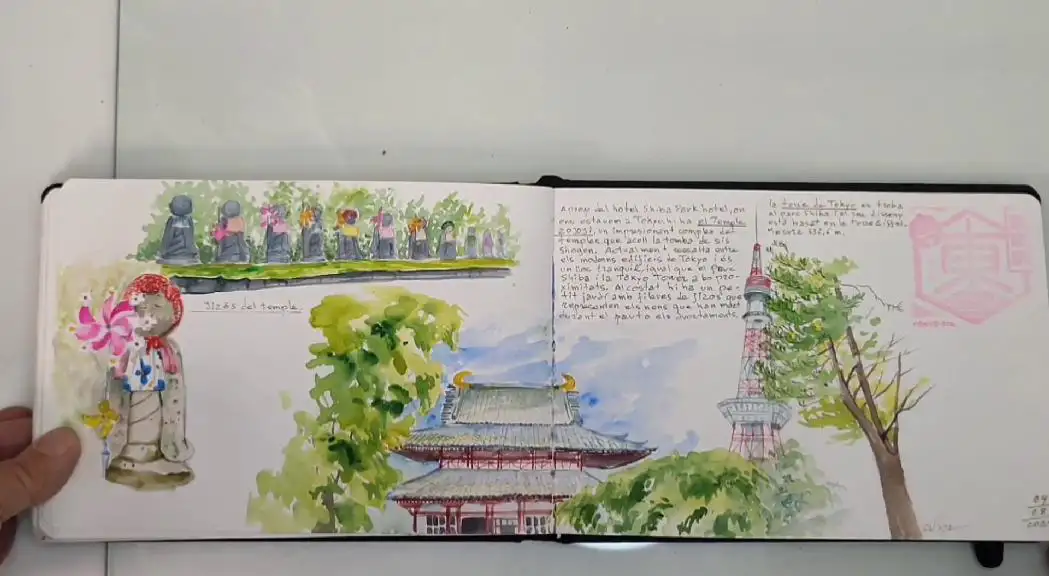 Jizos del temple.
A prop del hotel Shiba Park hotel, on
ens estavem a Tokyo hi ha el Temple
ZOJOJI, un impresionant complex de
temples que acull la tomba de sis
shogun. Actualment ressalta entre
els moderns edificis de Tokyo i és
un lloc tranquil, igual que el parc
Shiba i la Tokyo Tower a bo pro-
ximitats. Al costat hi ha un pe-
tit jardí amb fileres de Jizos que
representen els nens que han mort
durant el part o els avortaments.
la torre de Tokyo es troba
al parc Shiba i el seu disseny
està basat en la Torre Eiffel
mesura 332,5 m.